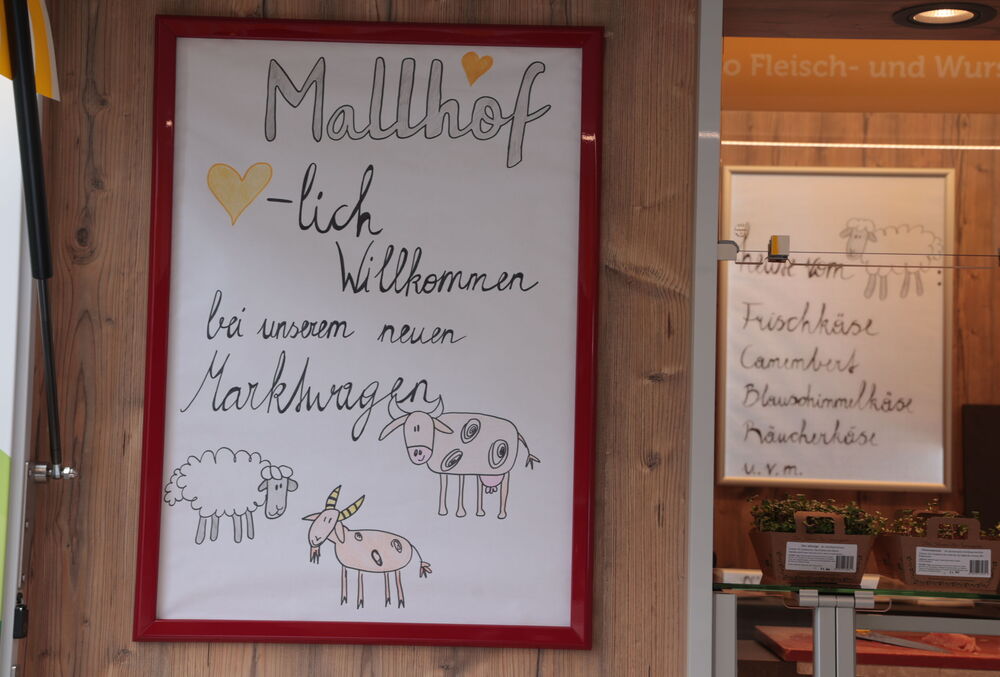 Mallhof
-lich
Willkommen
bei unserem neuen
Marktwagen
o Fleisch- und Wurs
Heute vom
Frischkäse
Camembert
Blauschimmelkäse
Räucherkäse
u.v.m.